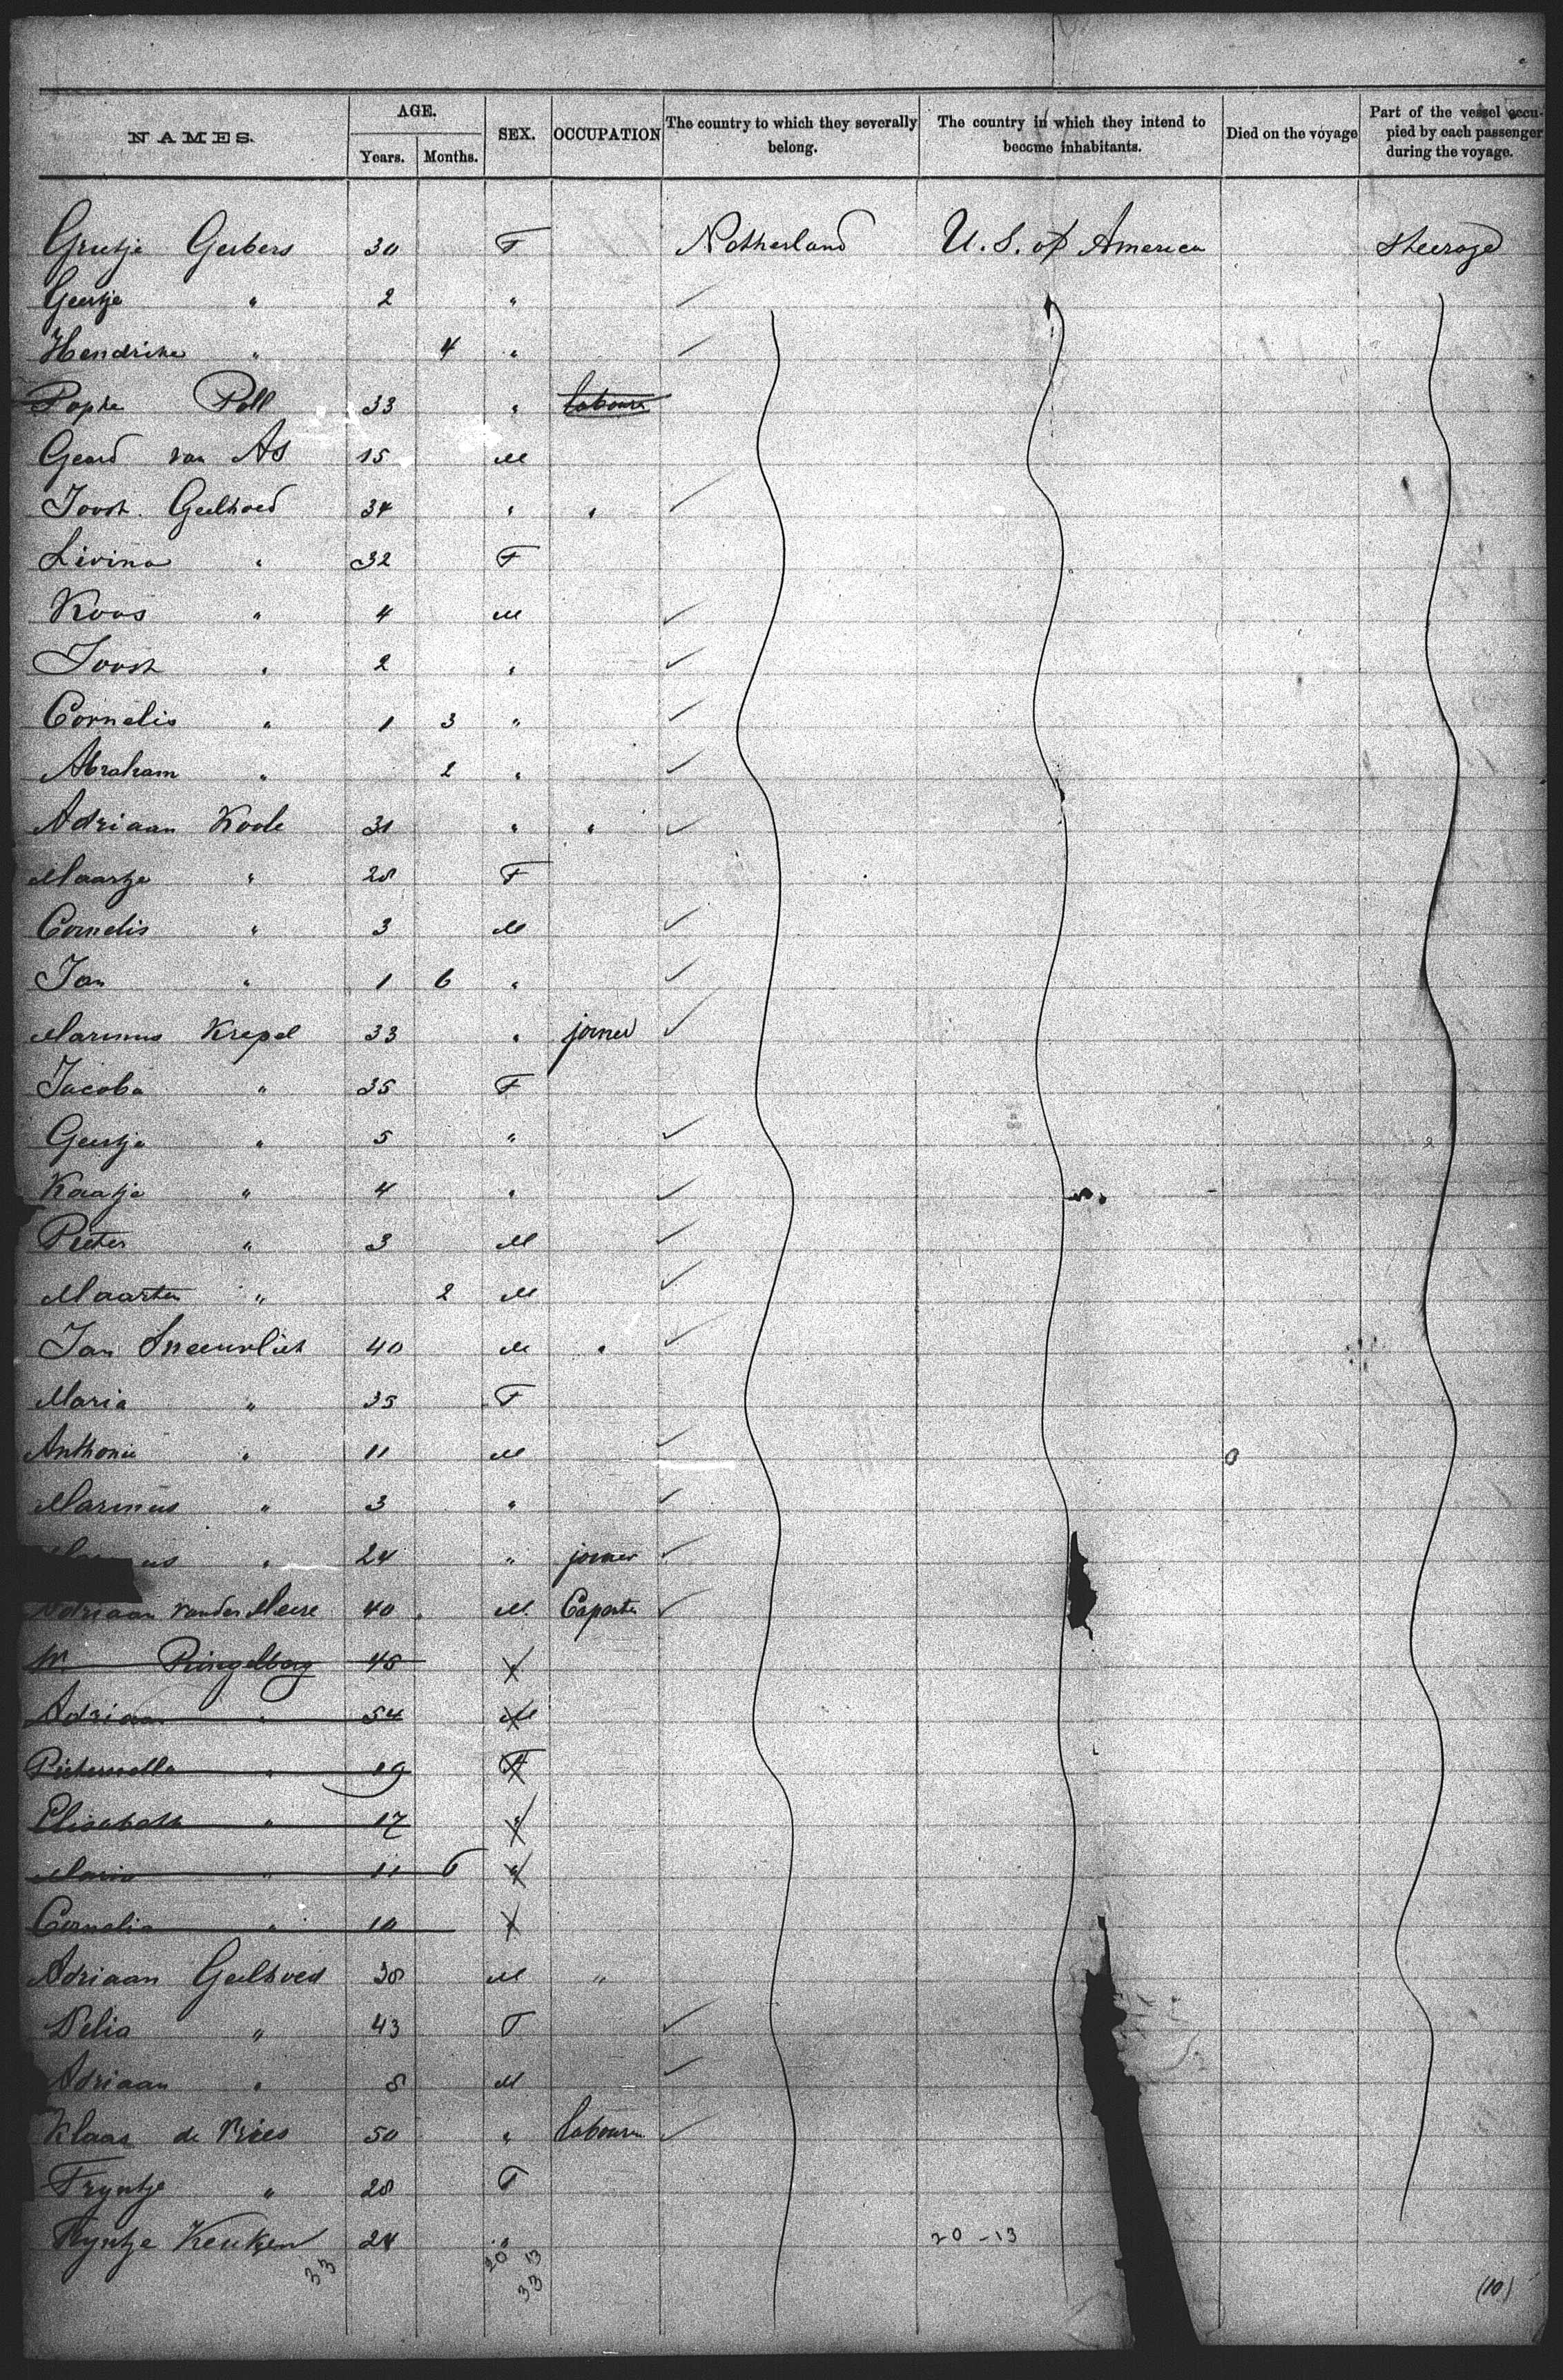 NAMES. AGE. Years. Months. SEX. OCCUPATION The country to which they severally belong. The country in which they intend to become inhabitants. Died on the voyage Part of the vessel occupied by each passenger during the voyage.
Grietje Gerbers 30 F Netherland U. S. of America Steerage
Geertje " 2 "
Hendrike " 4 "
Popke Poll 33 " labourer
Geard van As 15 M
Joost Geelhoed 34 " "
Livina " 32 F
Koos " 4 M
Joost " 2 "
Cornelis " 1 3 "
Abraham " 2 "
Adriaan Koole 31 " "
Maartje " 28 F
Cornelis " 3 M
Jan " 1 6 "
Marinus Krepel 33 " joiner
Jacoba " 35 F
Geertje " 5 "
Kaatje " 4 "
Pieter " 3 M
Maarten " 2 M
Jan 40 M "
Maria " 35 F
Anthonie " 11 M
Marinus " 3 "
us " 24 " joiner
Adriaan van der Meere 40 M. Caparte
W. Ringelberg 45 "
Adriaan " 54 M
Pieternella " 19 F
Elisabeth " 17 "
Maria " 11 6 "
Cornelia " 10 "
Adriaan Geelhoed 38 M "
Nelia " 43 F
Adriaan " 8 M
Klaas de Vries 50 " labourer
Tryntje " 28 F
Tryntje Keuken 24 " 20-13
33 20 13
33
(10)